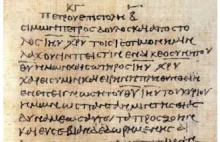 ΚΓ
ΠΕΤΡΟΥ ΕΠΙϹΤΟΛΗ Β
ϹΙΜΩΝ ΠΕΤΡΟϹ ΔΟΥΛΟϹ ΚΑΙ ΑΠΟϹΤΟ
ΛΟϹ ΙΗΥ ΧΡΥ ΤΟΙϹ ΙϹΟΤΙΜΟΝ ΗΜΙΝ
ΛΑΧΟΥϹΙΝ ΠΙϹΤΙΝ ΕΝ ΔΙΚΕΟϹΥΝΗ
ΘΥ ΗΜΩΝ ΚΑΙ ϹΩΤΗΡΟϹ ΙΗΥ ΧΡΥ
ΧΑΡΙϹ ΥΜΙΝ ΚΑΙ ΕΙΡΗΝΗ ΠΛΗΘΥΝΘΕΙΗ
ΕΝ ΕΠΙΓΝΩϹΕΙ ΤΟΥ ΘΥ ΙΗΥ ΤΟΥ ΚΥΡΙΟΥ
ΗΜΩΝ ΩϹ ΠΑΝΤΑ ΗΜΙΝ ΤΗϹ ΘΕΙΑϹ
ΔΥΝΑΜΕΩϹ ΑΥΤΟΥ ΤΑ ΠΡΟϹ ΖΩΗΝ
ΚΑΙ ΕΥϹΕΒΙΑΝ ΔΕΔΩΡΗΜΕΝΗϹ